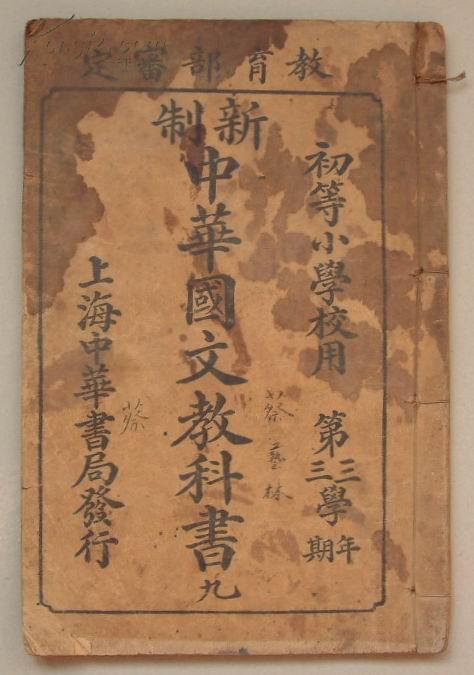 教育部審定
初等小學校用 第三三學年期
蔡藝林
新制中華國文教科書九
蔡
上海中華書局發行